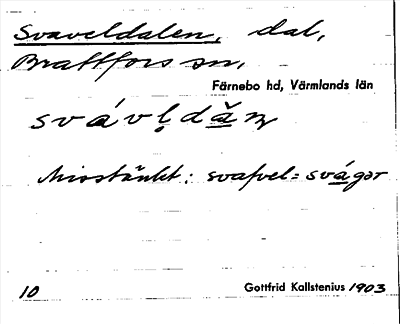 Svaveldalen, dal,
Brattfors sn,
Färnebo hd, Värmlands län
svávl̥dăn̥
Misstänkt: svafvel = svágər
10 Gottfrid Kallstenius 1903